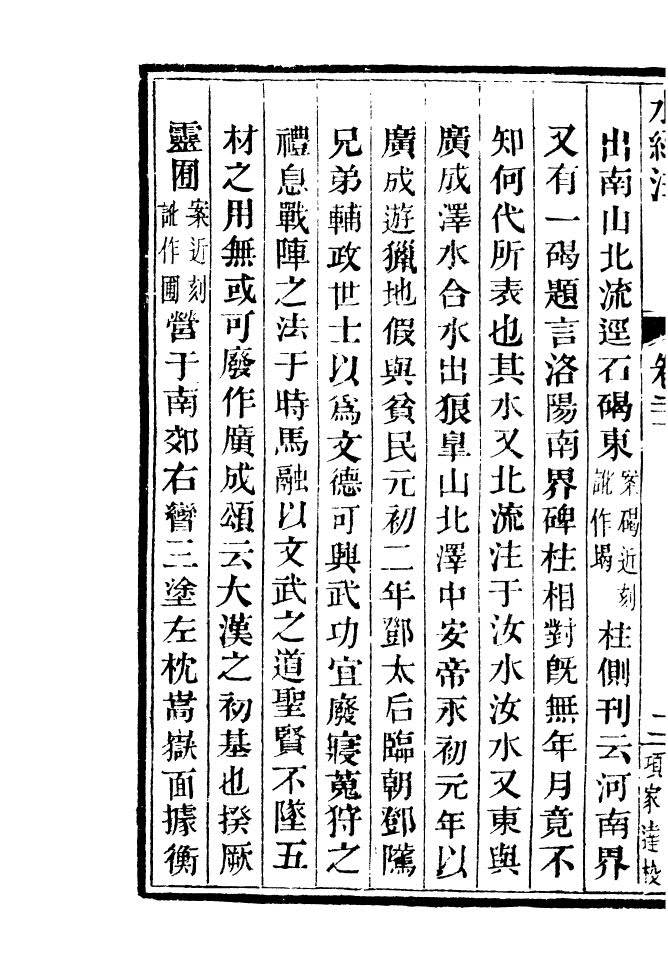 水經注 卷二 二 項家達校
出南山北流逕石碣東案碣近刻訛作堨柱側刊云河南界
又有一碣題言洛陽南界碑柱相對旣無年月竟不
知何代所表也其水又北流注于汝水汝水又東與
廣成澤水合水出狼臯山北澤中安帝永初元年以
廣成遊獵地假與貧民元初二年鄧太后臨朝鄧騭
兄弟輔政世士以爲文德可興武功宜廢寢蒐狩之
禮息戰陣之法于時馬融以文武之道聖賢不墜五
材之用無或可廢作廣成頌云大漢之初基也揆厥
靈囿案近刻訛作圃營于南郊右矕三塗左枕嵩嶽面據衡